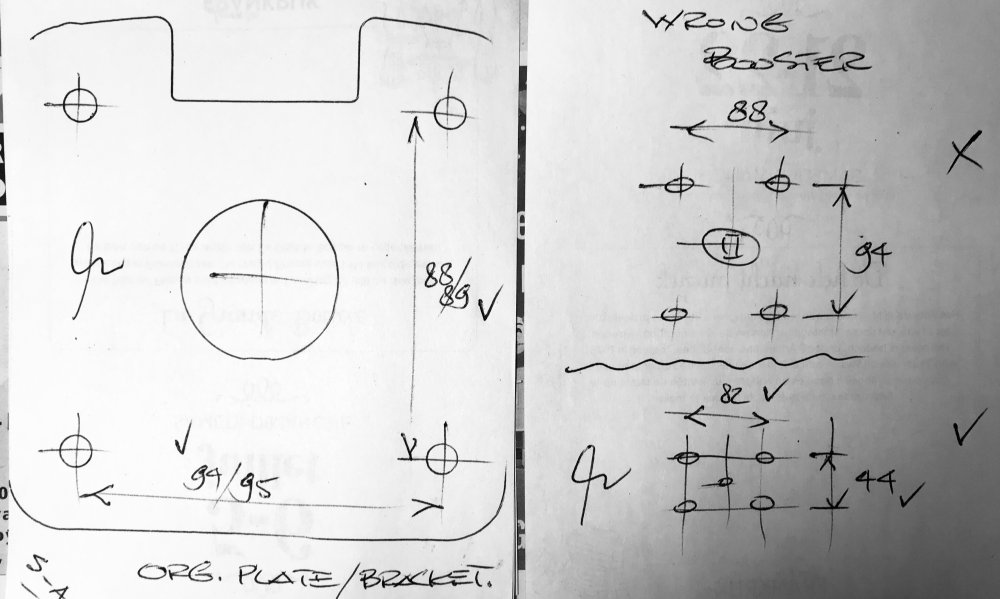 88/
89 ✓
✓
94/95
ORG. PLATE/BRACKET.
WRONG
BOOSTER
88.
X
94
82 ✓
✓
44 ✓